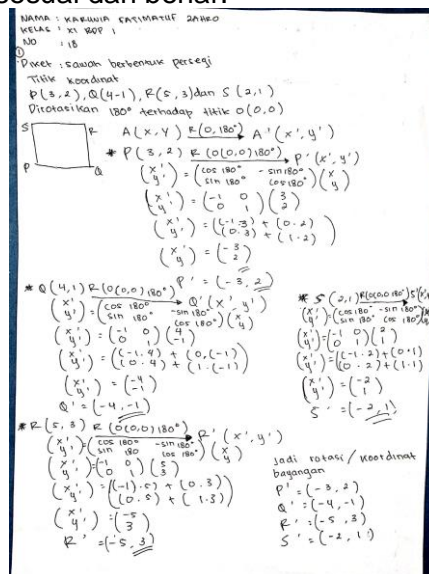 sesuai dan benar.
NAMA : KARUNIA FATIMATUF ZAHRO
KELAS : XI BDP 1
NO : 18
①
Diket : sawah berbentuk persegi
Titik koordinat
P(3,2), Q(4-1), R(5,3) dan S(2,1)
Dirotasikan 180° terhadap titik O(0,0)
S R
P Q
A(x,y) R(0,180°) A'(x',y')
* P(3,2) R(O(0,0)180°) P'(x',y')
(x' y') = (cos 180° -sin 180° sin 180° cos 180°)(x y)
(x' y') = (-1 0 0 1)(3 2)
(x' y') = ((-1.3) + (0.2) (0.3) + (1.2))
(x' y') = (-3 2)
P' = (-3,2)
* Q(4,1) R(O(0,0)180°) Q'(x',y')
(x' y') = (cos 180° -sin 180° sin 180° cos 180°)(x y)
(x' y') = (-1 0 0 1)(4 -1)
(x' y') = ((-1.4) + (0,(-1) (0.4) + (1.(-1))
(x' y') = (-4 -1)
Q' = (-4,-1)
* R(5,3) R(O(0,0)180°) R'(x',y')
(x' y') = (cos 180° -sin 180° sin 180 cos 180°)(x y)
(x' y') = (-1 0 0 1)(5 3)
(x' y') = ((-1).5) + (0.3) (0.5) + (1.3))
(x' y') = (-5 3)
R' = (-5,3)
* S(2,1) R(O(0,0)180°) S'
(x' y') = (cos 180° -sin 180° sin 180° cos 180°)
(x' y') = (-1 0 0 1)(2 1)
(x' y') = ((-1.2) + (0.1) (0.2) + (1.1)
(x' y') = (-2 1)
S' = (-2,1)
Jadi rotasi/koordinat
bayangan
P' = (-3,2)
Q' = (-4,-1)
R' = (-5,3)
S' = (-2,1)